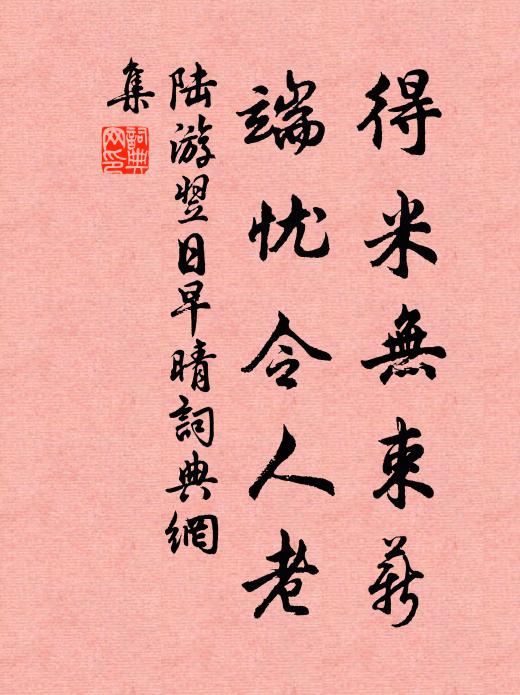 得米無束薪
端忧令人老
陆游翌日早晴詞典網
集
詞典
网印